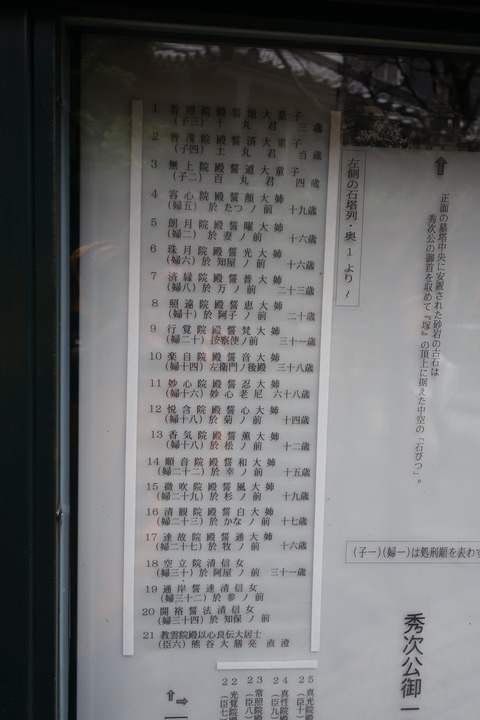 1 香照院殿誓旭大童子
(子三) 十丸君 三歳
2 普現院殿誓済大童子
(子四) 土丸君 当歳
3 無上院殿誓道大童子
(子二) 百丸君 四歳
4 容心院殿誓願大姉
(婦五) 於たつノ前 十九歳
5 朗月院殿誓曜大姉
(婦二) 於妻ノ前 十六歳
6 珠月院殿誓光大姉
(婦六) 於知屋ノ前 十六歳
7 済縁院殿誓普大姉
(婦八) 於万ノ前 二十三歳
8 照遠院殿誓恵大姉
(婦十) 於阿子ノ前 二十歳
9 行覚院殿誓梵大姉
(婦二十) 按察使ノ前 三十一歳
10 楽自院殿誓音大姉
(婦十四) 左衛門ノ後殿 三十八歳
11 妙心院殿誓忍大姉
(婦十六) 妙心老尼 六十八歳
12 悦含院殿誓心大姉
(婦十八) 於菊ノ前 十四歳
13 香気院殿誓薫大姉
(婦十八) 於松ノ前 十二歳
14 順音院殿誓和大姉
(婦二十二) 於幸ノ前 十五歳
15 微吹院殿誓風大姉
(婦二十九) 於杉ノ前 十九歳
16 清観院殿誓白大姉
(婦二十三) 於かなノ前 十七歳
17 達故院殿誓通大姉
(婦二十七) 於牧ノ前 十六歳
18 空立院清信女
(婦三十) 於阿屋ノ前 三十一歳
19 通岸誓達清信女
(婦三十二) 於参ノ前
20 開裕誓法清信女
(婦三十四) 於知保ノ前
21 教雲院殿以心良伝大居士
(臣六) 熊谷大膳亮直澄
左側の石塔列・奥1より〜
⇧
正面の墓塔中央に安置された砂岩の古石は
秀次公の御首を収めて『塚』の頂上に据えた中空の「石びつ」。
(子一)(婦一)は処刑順を表わす
秀次公御一
25 真光院殿
24 真性院殿
(臣九)
23 常照院殿
(臣八)
22 光覚院殿
(臣七)
⇧⇨